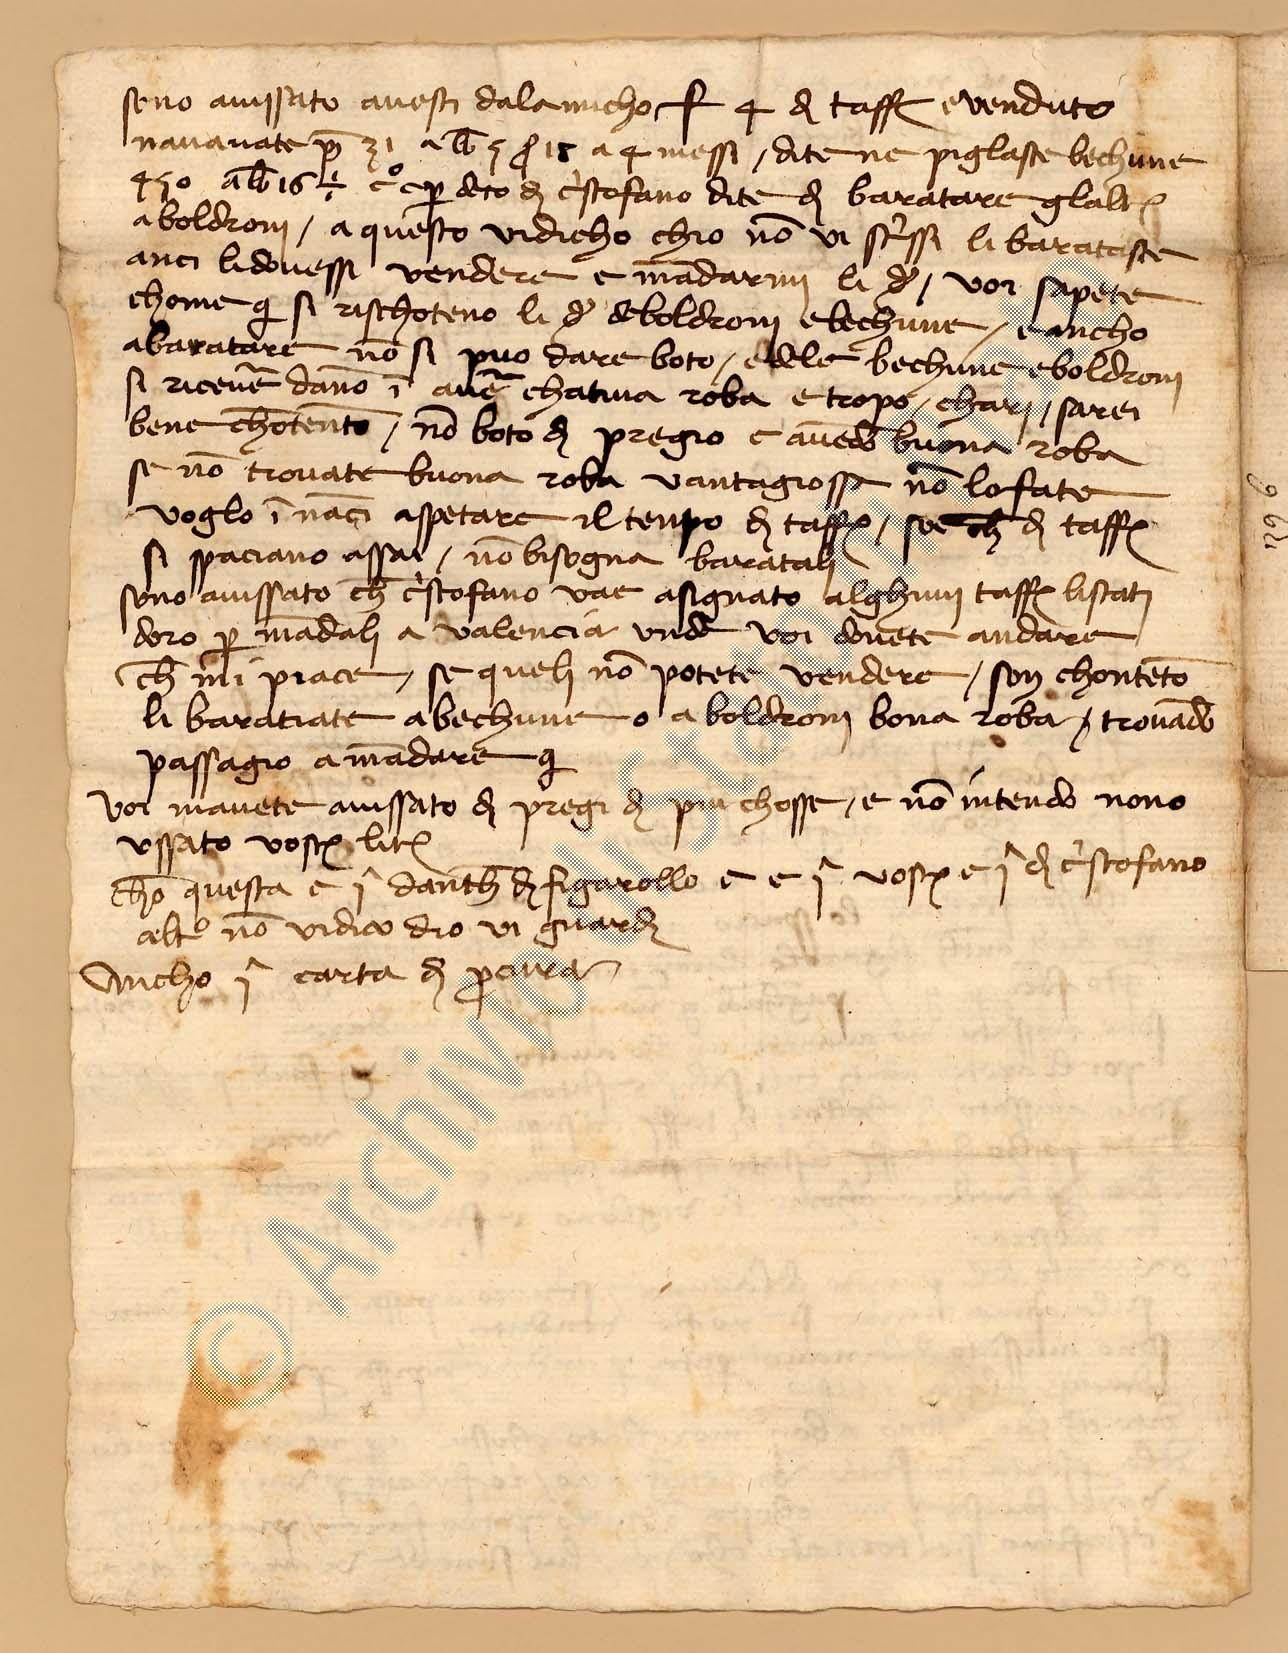 sono avissato avesti dalamicho f 4 di taff e venduto
navavate pᵉ 31 a lb 5 ꝑ 18 a 4 messi / dite ne piglaste bechune
450 a lb 16 deto di cristofano dite di baratare glaltr
a boldroni / a questo vidicho chio nō vi scrissi li barataste
anci lidovessi vendere e mādarmi li d / voi sapete
chome q si rischoteno li d deboldroni e bechune / e ancho
abaratare nō si puo dare boto / e dele bechune e boldroni
si riceve dano ī avē chativa roba e tropo chari / sarei
bene chōtento / nō boto di pregio e avēdo buona roba
se nō trovate buona roba vantagiossa nō lo fate
voglo ī nāci aspetare il tenpo di taff / se di taff
si spaciano assai / nō bisogna baratali
sono avissato ch cristofano vae asignato alghuni taff listati
doro ꝑ mādali a valencia unde voi dovete andare
ch mi piace / se queli nō potete vendere / son chontēto
li baratiate a bechune o a boldroni bona roba / trovādo
passagio a mādare q
voi mavete avissato di pregi di piu chosse / e nō intendo nono
ussato vostr litr
chō questa e jᵃ danth di figarollo e e jᵃ vostr e jᵃ di cristofano
altº nō vidico dio vi guardi
Ancho jᵃ carta di ꝓcura
© Archivio di Stato